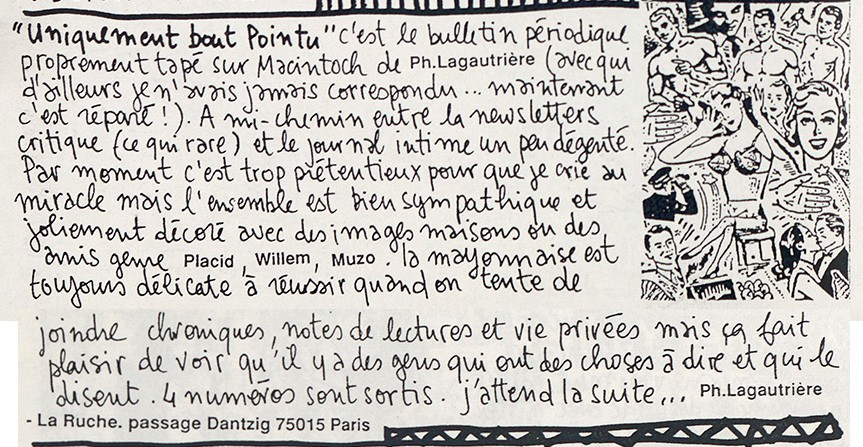 "Uniquement bout Pointu" c'est le bulletin périodique
proprement tapé sur Macintoch de Ph.Lagautrière (avec qui
d'ailleurs je n'avais jamais correspondu... maintenant
c'est réparé !). A mi-chemin entre la newsletters
critique (ce qui rare) et le journal intime un peu dégenté.
Par moment c'est trop prétentieux pour que je crie au
miracle mais l'ensemble est bien sympathique et
joliement décoré avec des images maisons ou des
amis genre Placid, Willem, Muzo. la mayonnaise est
toujours délicate à réussir quand on tente de
joindre chroniques, notes de lectures et vie privées mais ça fait
plaisir de voir qu'il y a des gens qui ont des choses à dire et qui le
disent. 4 numéros sont sortis. j'attend la suite... Ph.Lagautrière
- La Ruche. passage Dantzig 75015 Paris